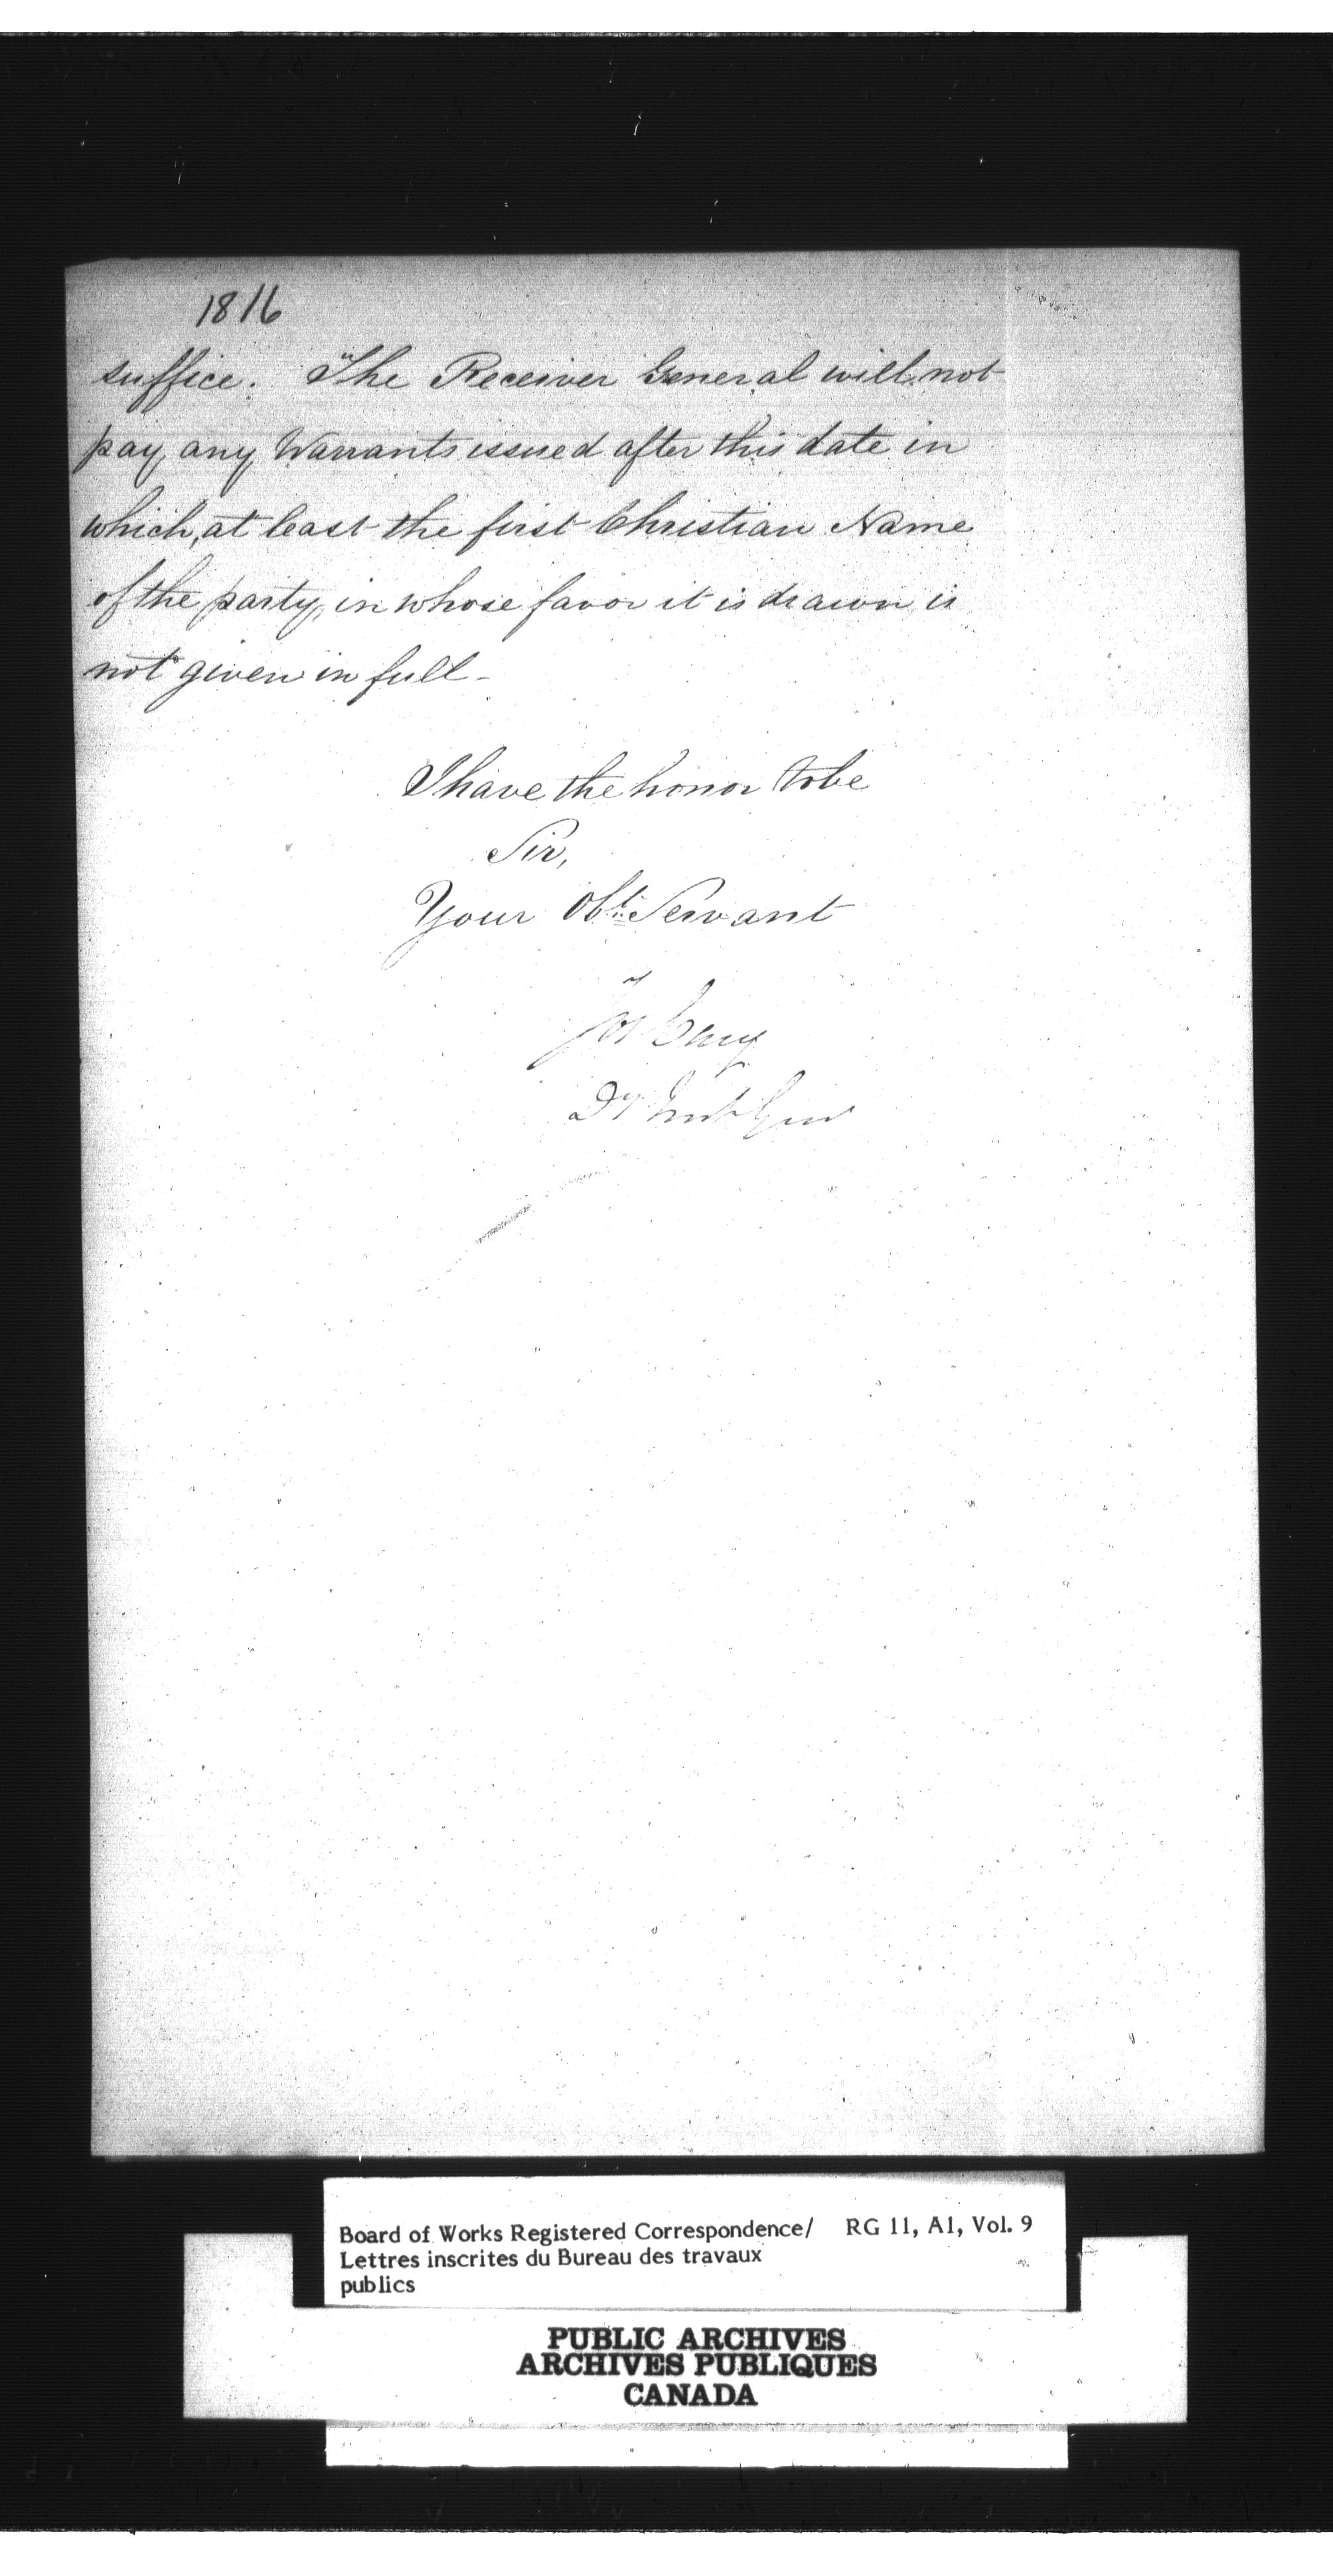 1816
suffice. The Receiver General will not
pay any Warrants issued after this date in
which, at least the first Christian Name
of the party, in whose favor it is drawn, is
not given in full -
I have the honor to be
Sir,
Your Obt. Servant
Jos Cary
Dy
Board of Works Registered Correspondence/ RG 11, A1, Vol. 9
Lettres inscrites du Bureau des travaux
publics
PUBLIC ARCHIVES
ARCHIVES PUBLIQUES
CANADA